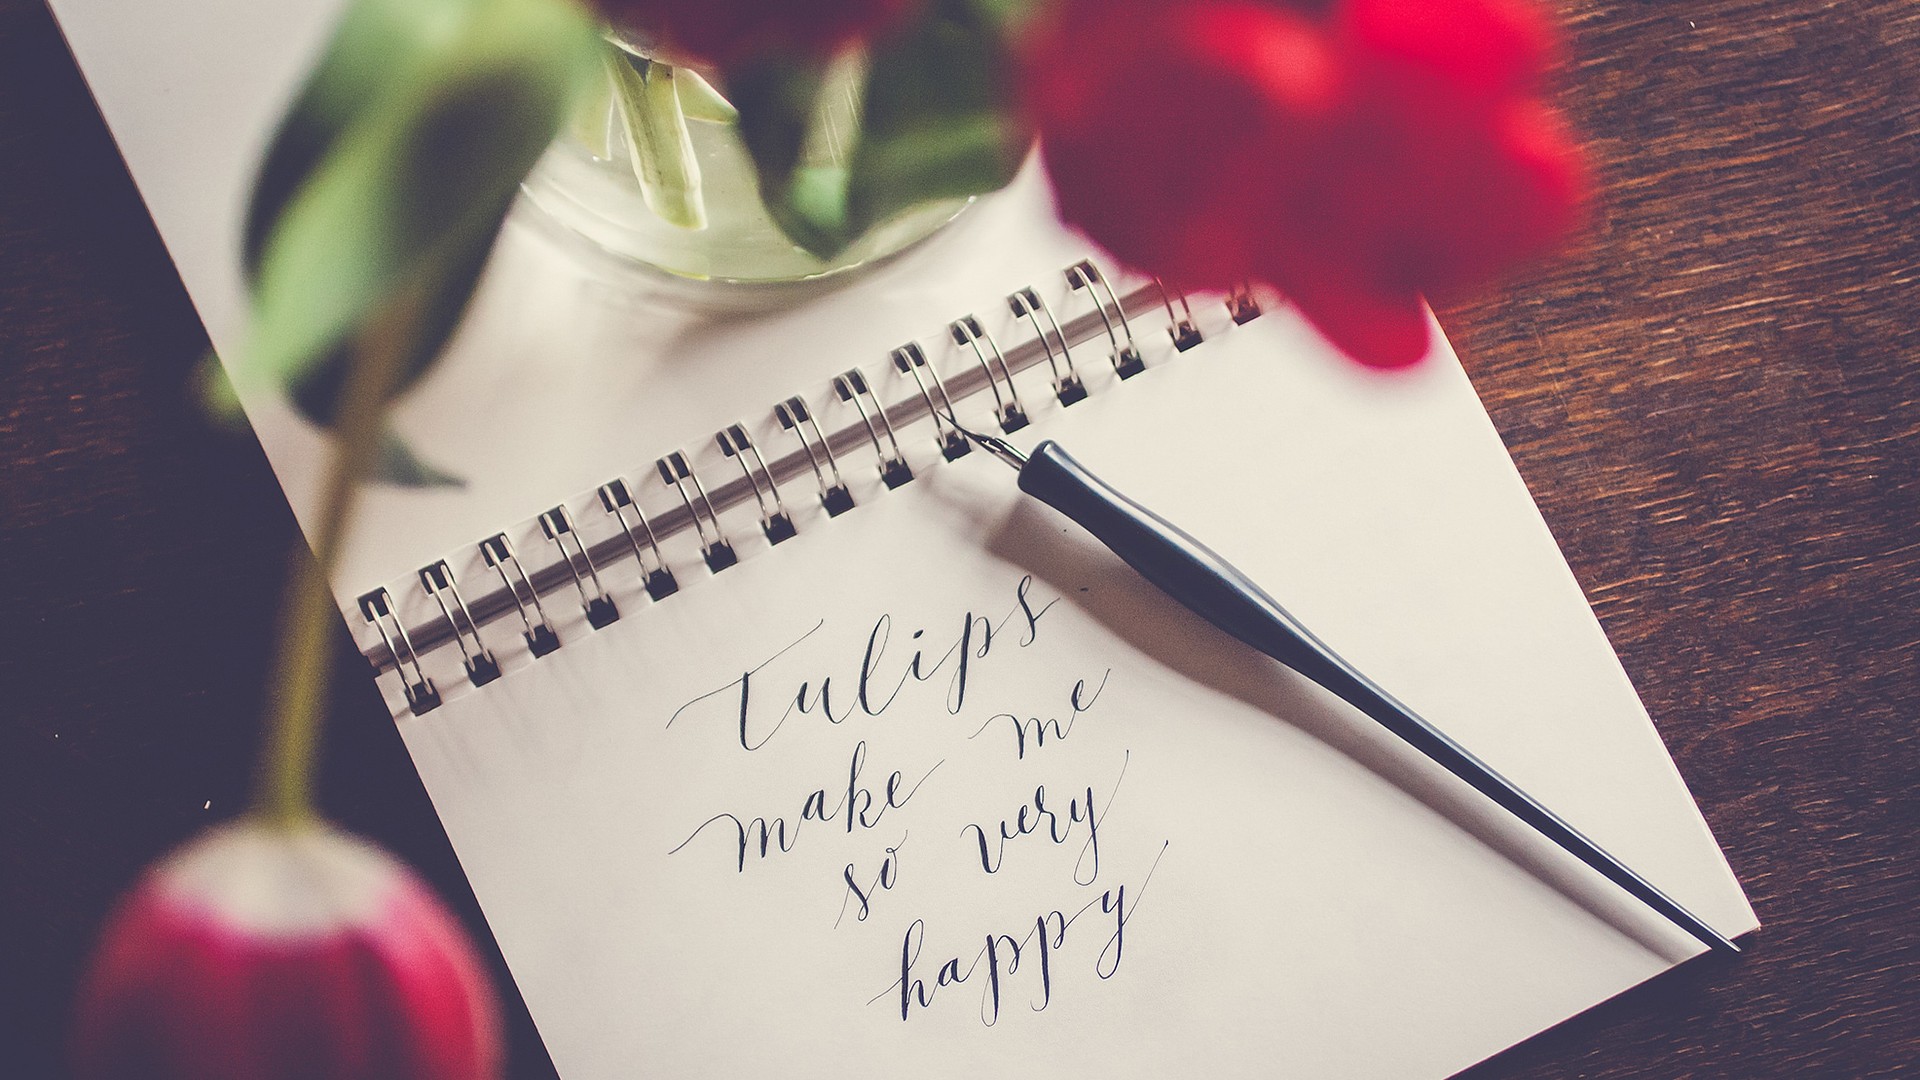 Tulips
make me
so very
happy